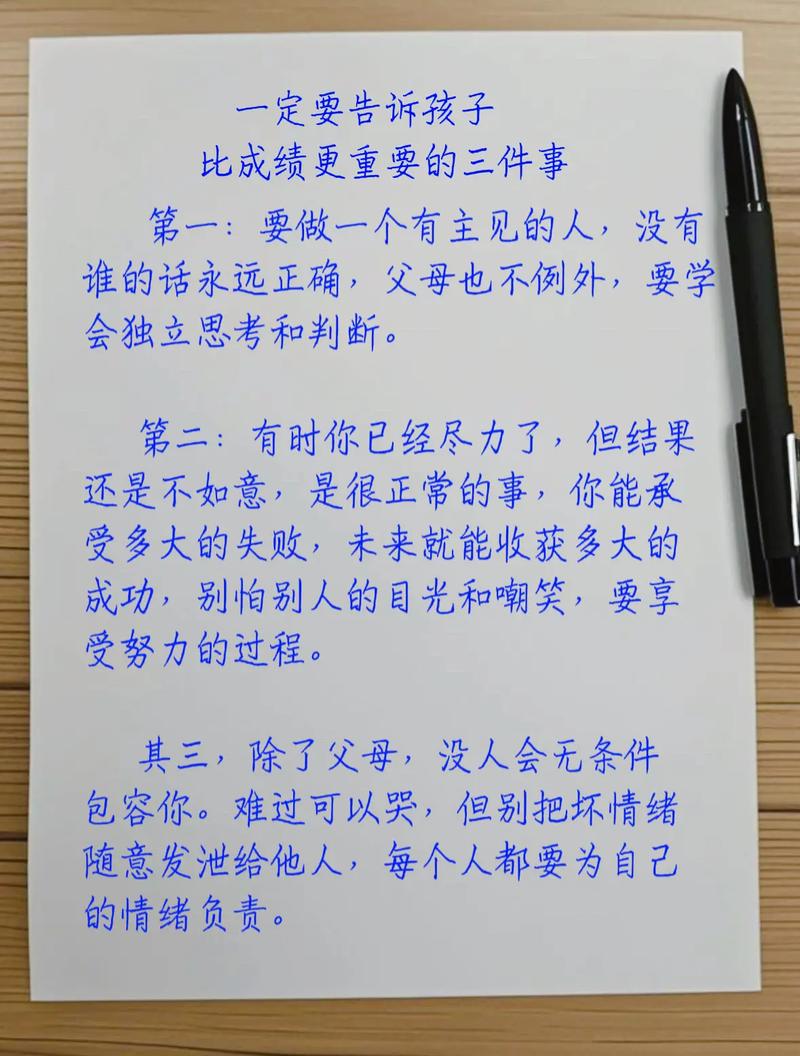 一定要告诉孩子
比成绩更重要的三件事
第一：要做一个有主见的人，没有
谁的话永远正确，父母也不例外，要学
会独立思考和判断。
第二：有时你已经尽力了，但结果
还是不如意，是很正常的事，你能承
受多大的失败，未来就能收获多大的
成功，别怕别人的目光和嘲笑，要享
受努力的过程。
其三，除了父母，没人会无条件
包容你。难过可以哭，但别把坏情绪
随意发泄给他人，每个人都要为自己
的情绪负责。